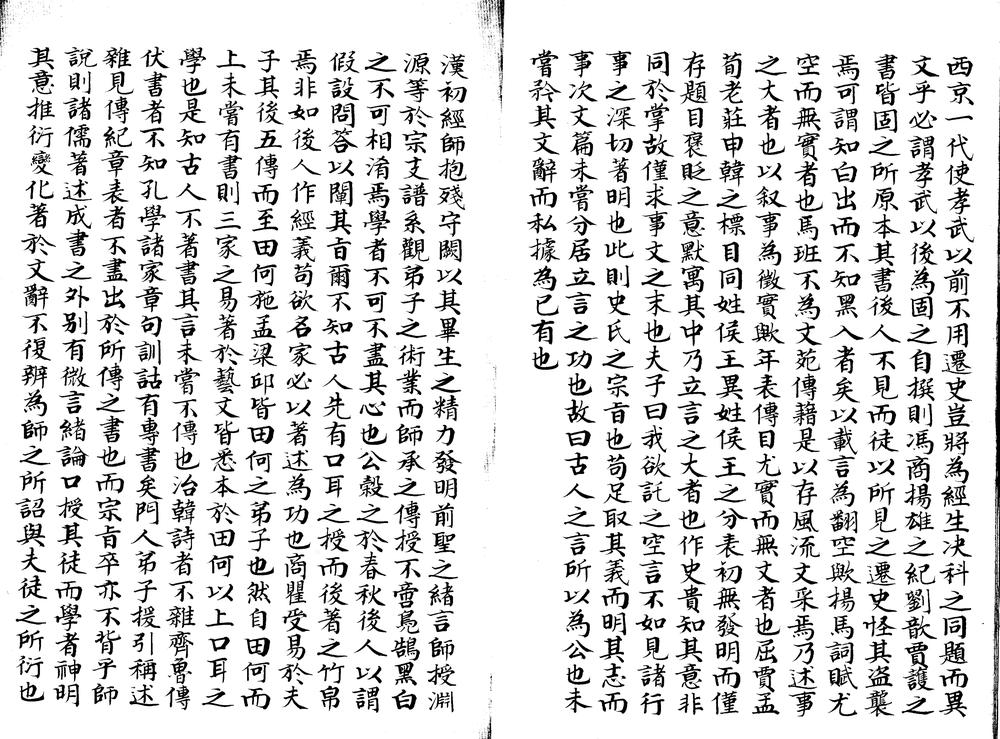 西京一代使孝武以前不用遷史豈將為經生决科之同題而異
文乎必謂孝武以後為固之自撰則馮商揚雄之紀劉歆賈護之
書皆固之所原本其書後人不見而徒以所見之遷史怪其盗襲
焉可謂知白出而不知黑入者矣以載言為翻空歟揚馬詞賦尤
空而無實者也馬班不為文苑傳藉是以存風流文采焉乃述事
之大者也以叙事為徵實歟年表傳目尤實而無文者也屈賈孟
荀老莊申韓之標目同姓侯王異姓侯王之分表初無發明而僅
存題目褒貶之意默寓其中乃立言之大者也作史貴知其意非
同於掌故僅求事文之末也夫子曰我欲託之空言不如見諸行
事之深切著明也此則史氏之宗旨也苟足取其義而明其志而
事次文篇未嘗分居立言之功也故曰古人之言所以為公也未
嘗矜其文辭而私據為已有也
漢初經師抱殘守闕以其畢生之精力發明前聖之緒言師授淵
源等於宗支譜系觀弟子之術業而師承之傳授不啻鳧鵠黑白
之不可相淆焉學者不可不盡其心也公穀之於春秋後人以謂
假設問答以闡其旨爾不知古人先有口耳之授而後著之竹帛
焉非如後人作經義苟欲名家必以著述為功也商瞿受易於夫
子其後五傳而至田何施孟梁邱皆田何之弟子也然自田何而
上未嘗有書則三家之易著於藝文皆悉本於田何以上口耳之
學也是知古人不著書其言未嘗不傳也治韓詩者不雜齊魯傳
伏書者不知孔學諸家章句訓詁有專書矣門人弟子援引稱述
雜見傳紀章表者不盡出於所傳之書也而宗旨卒亦不背乎師
說則諸儒著述成書之外别有微言緒論口授其徒而學者神明
其意推衍變化著於文辭不復辨為師之所詔與夫徒之所衍也